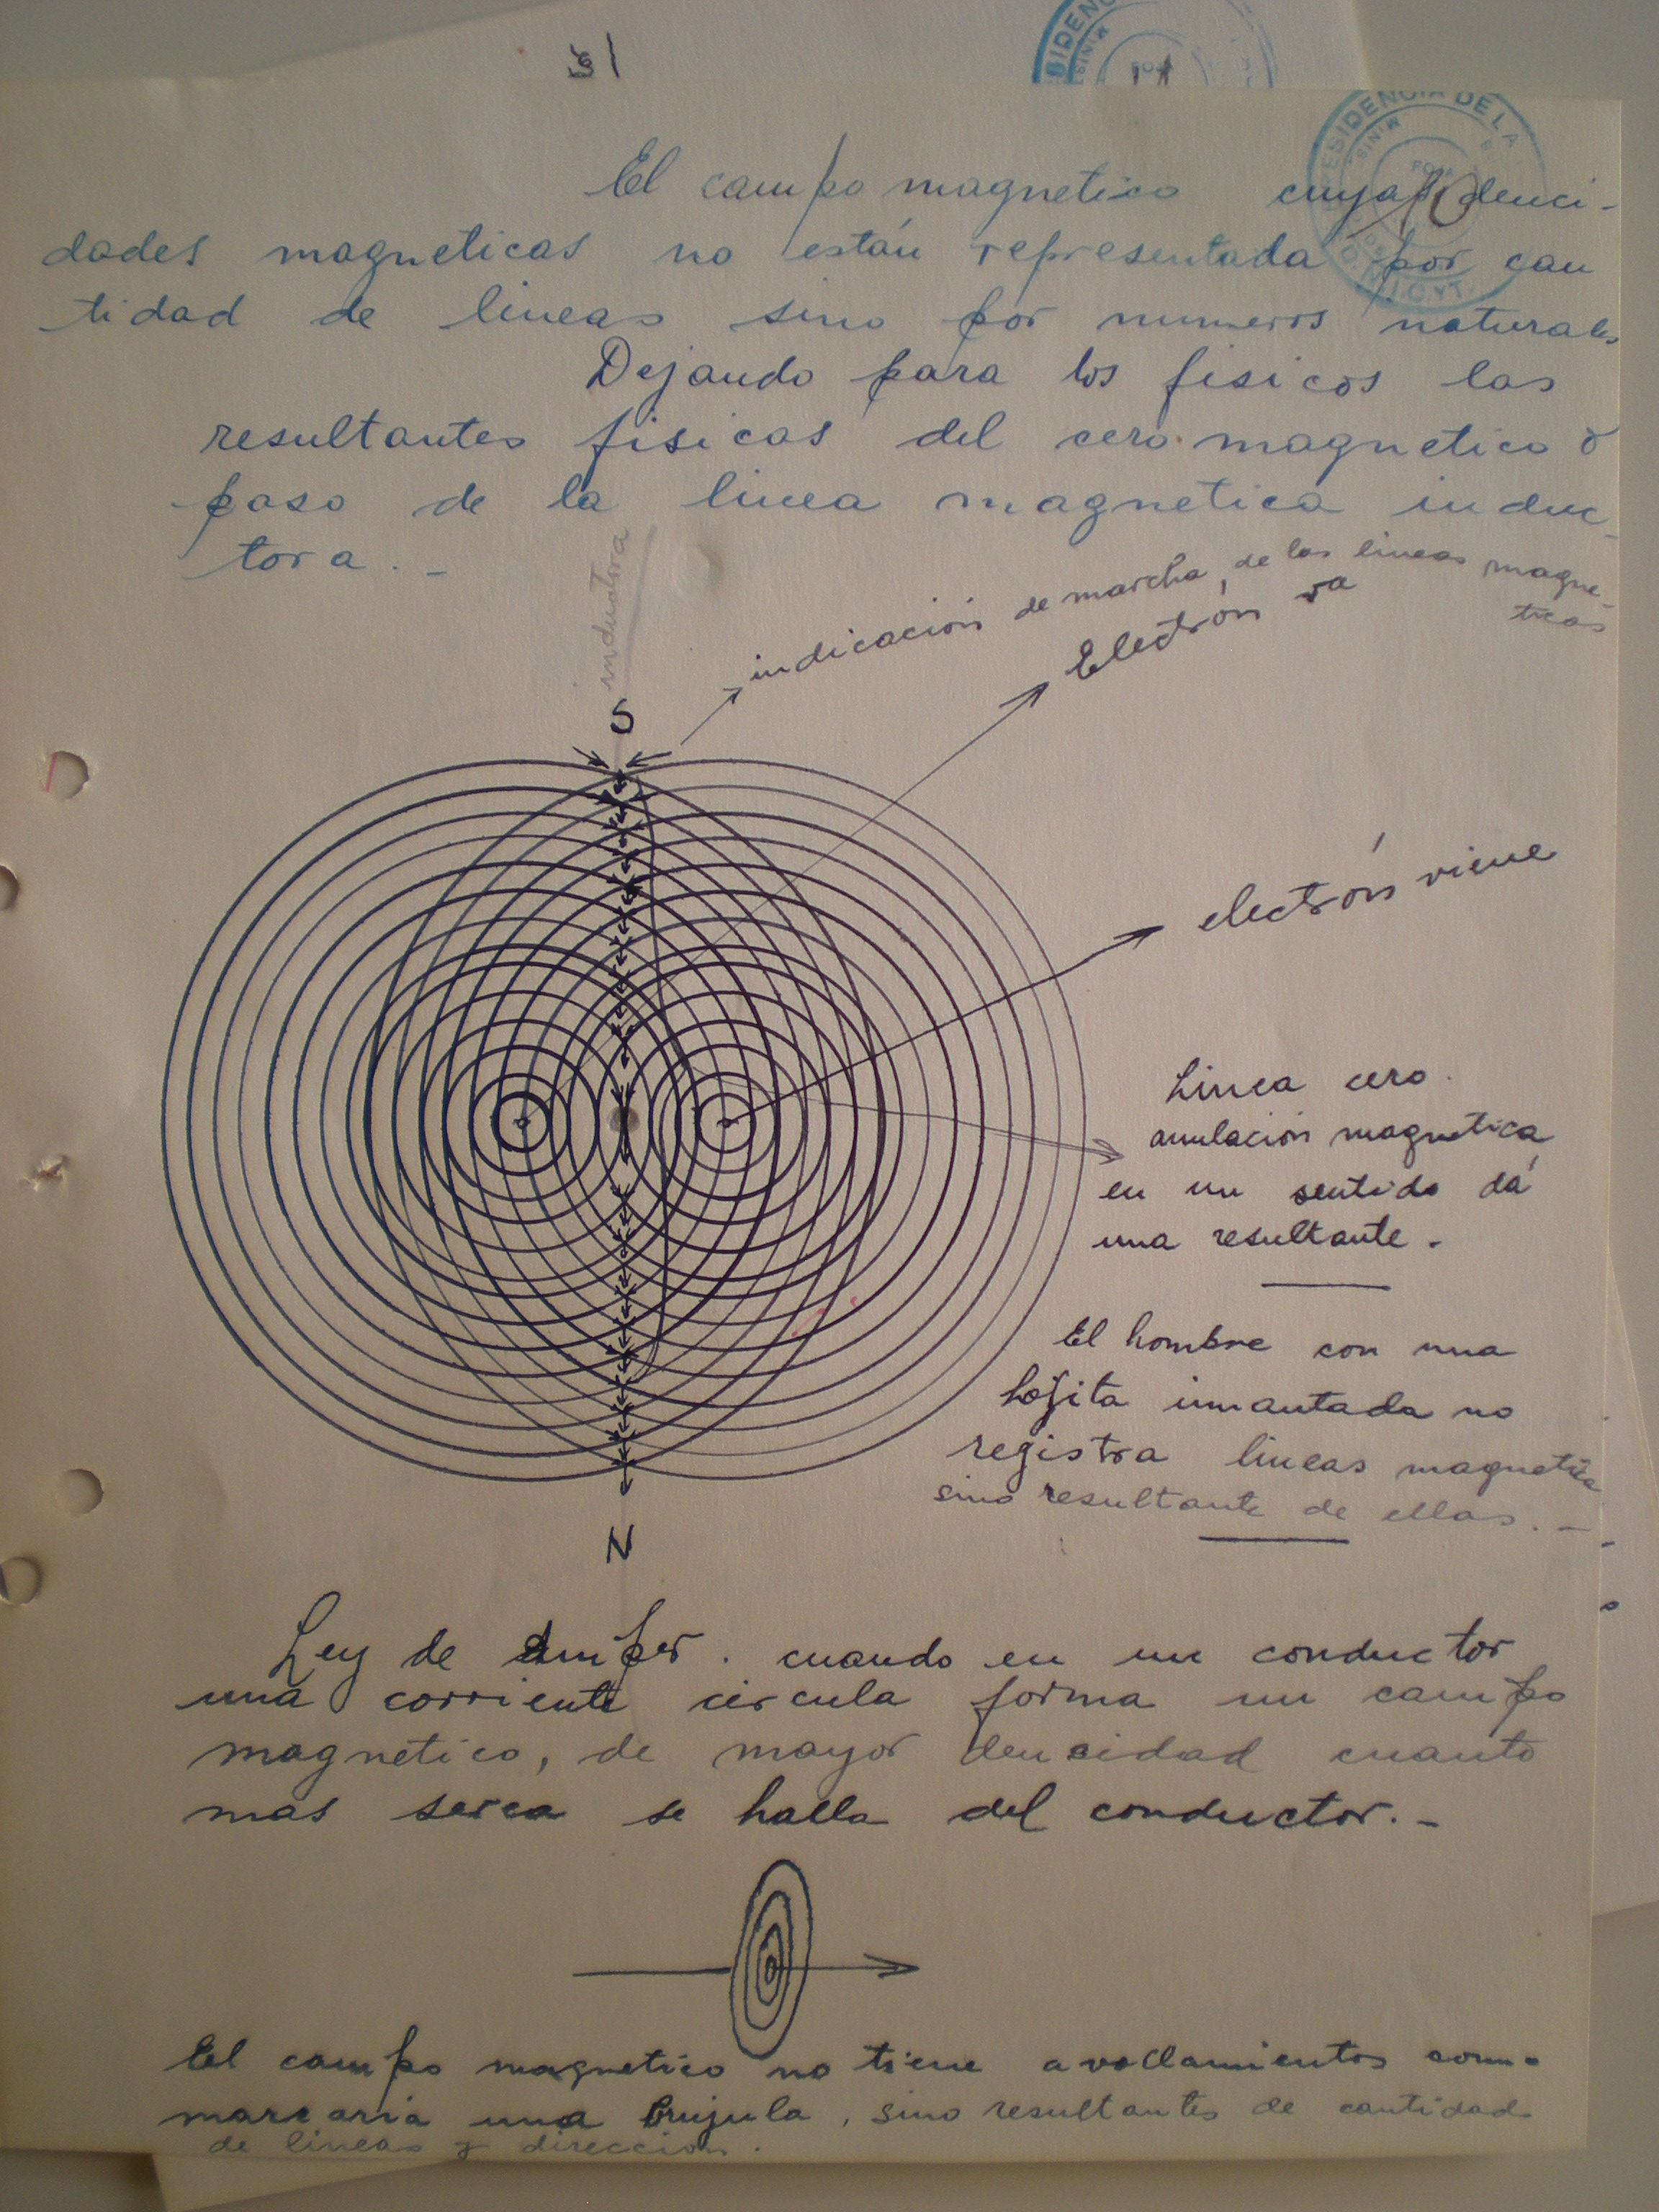 31
SIDENC
MINIS
ESIDENCIA DE LA
MINIS
FOJA
10
O.N.I.C.Y.T.
El campo magnetico cuyas denci-
dades magneticas no están representada por can
tidad de lineas sino por numeros naturales
Dejando para los fisicos las
resultantes fisicas del cero magnetico ó
paso de la linea magnetica induc
tora. -
inductora
indicación de marcha, de las lineas magne-
ticas
Electrón va
S
electrón viene
Linea cero.
anulación magnetica
en un sentido dá
una resultante -
El hombre con una
hojita imantada no
registra lineas magnetica
sino resultante de ellas. -
N
Ley de Amper. cuando en un conductor
una corriente circula forma un campo
magnetico, de mayor dencidad cuanto
mas serca se halla del conductor. -
El campo magnetico no tiene avollamientos como
marcaria una brujula, sino resultantes de cantidad
de lineas y direccion.